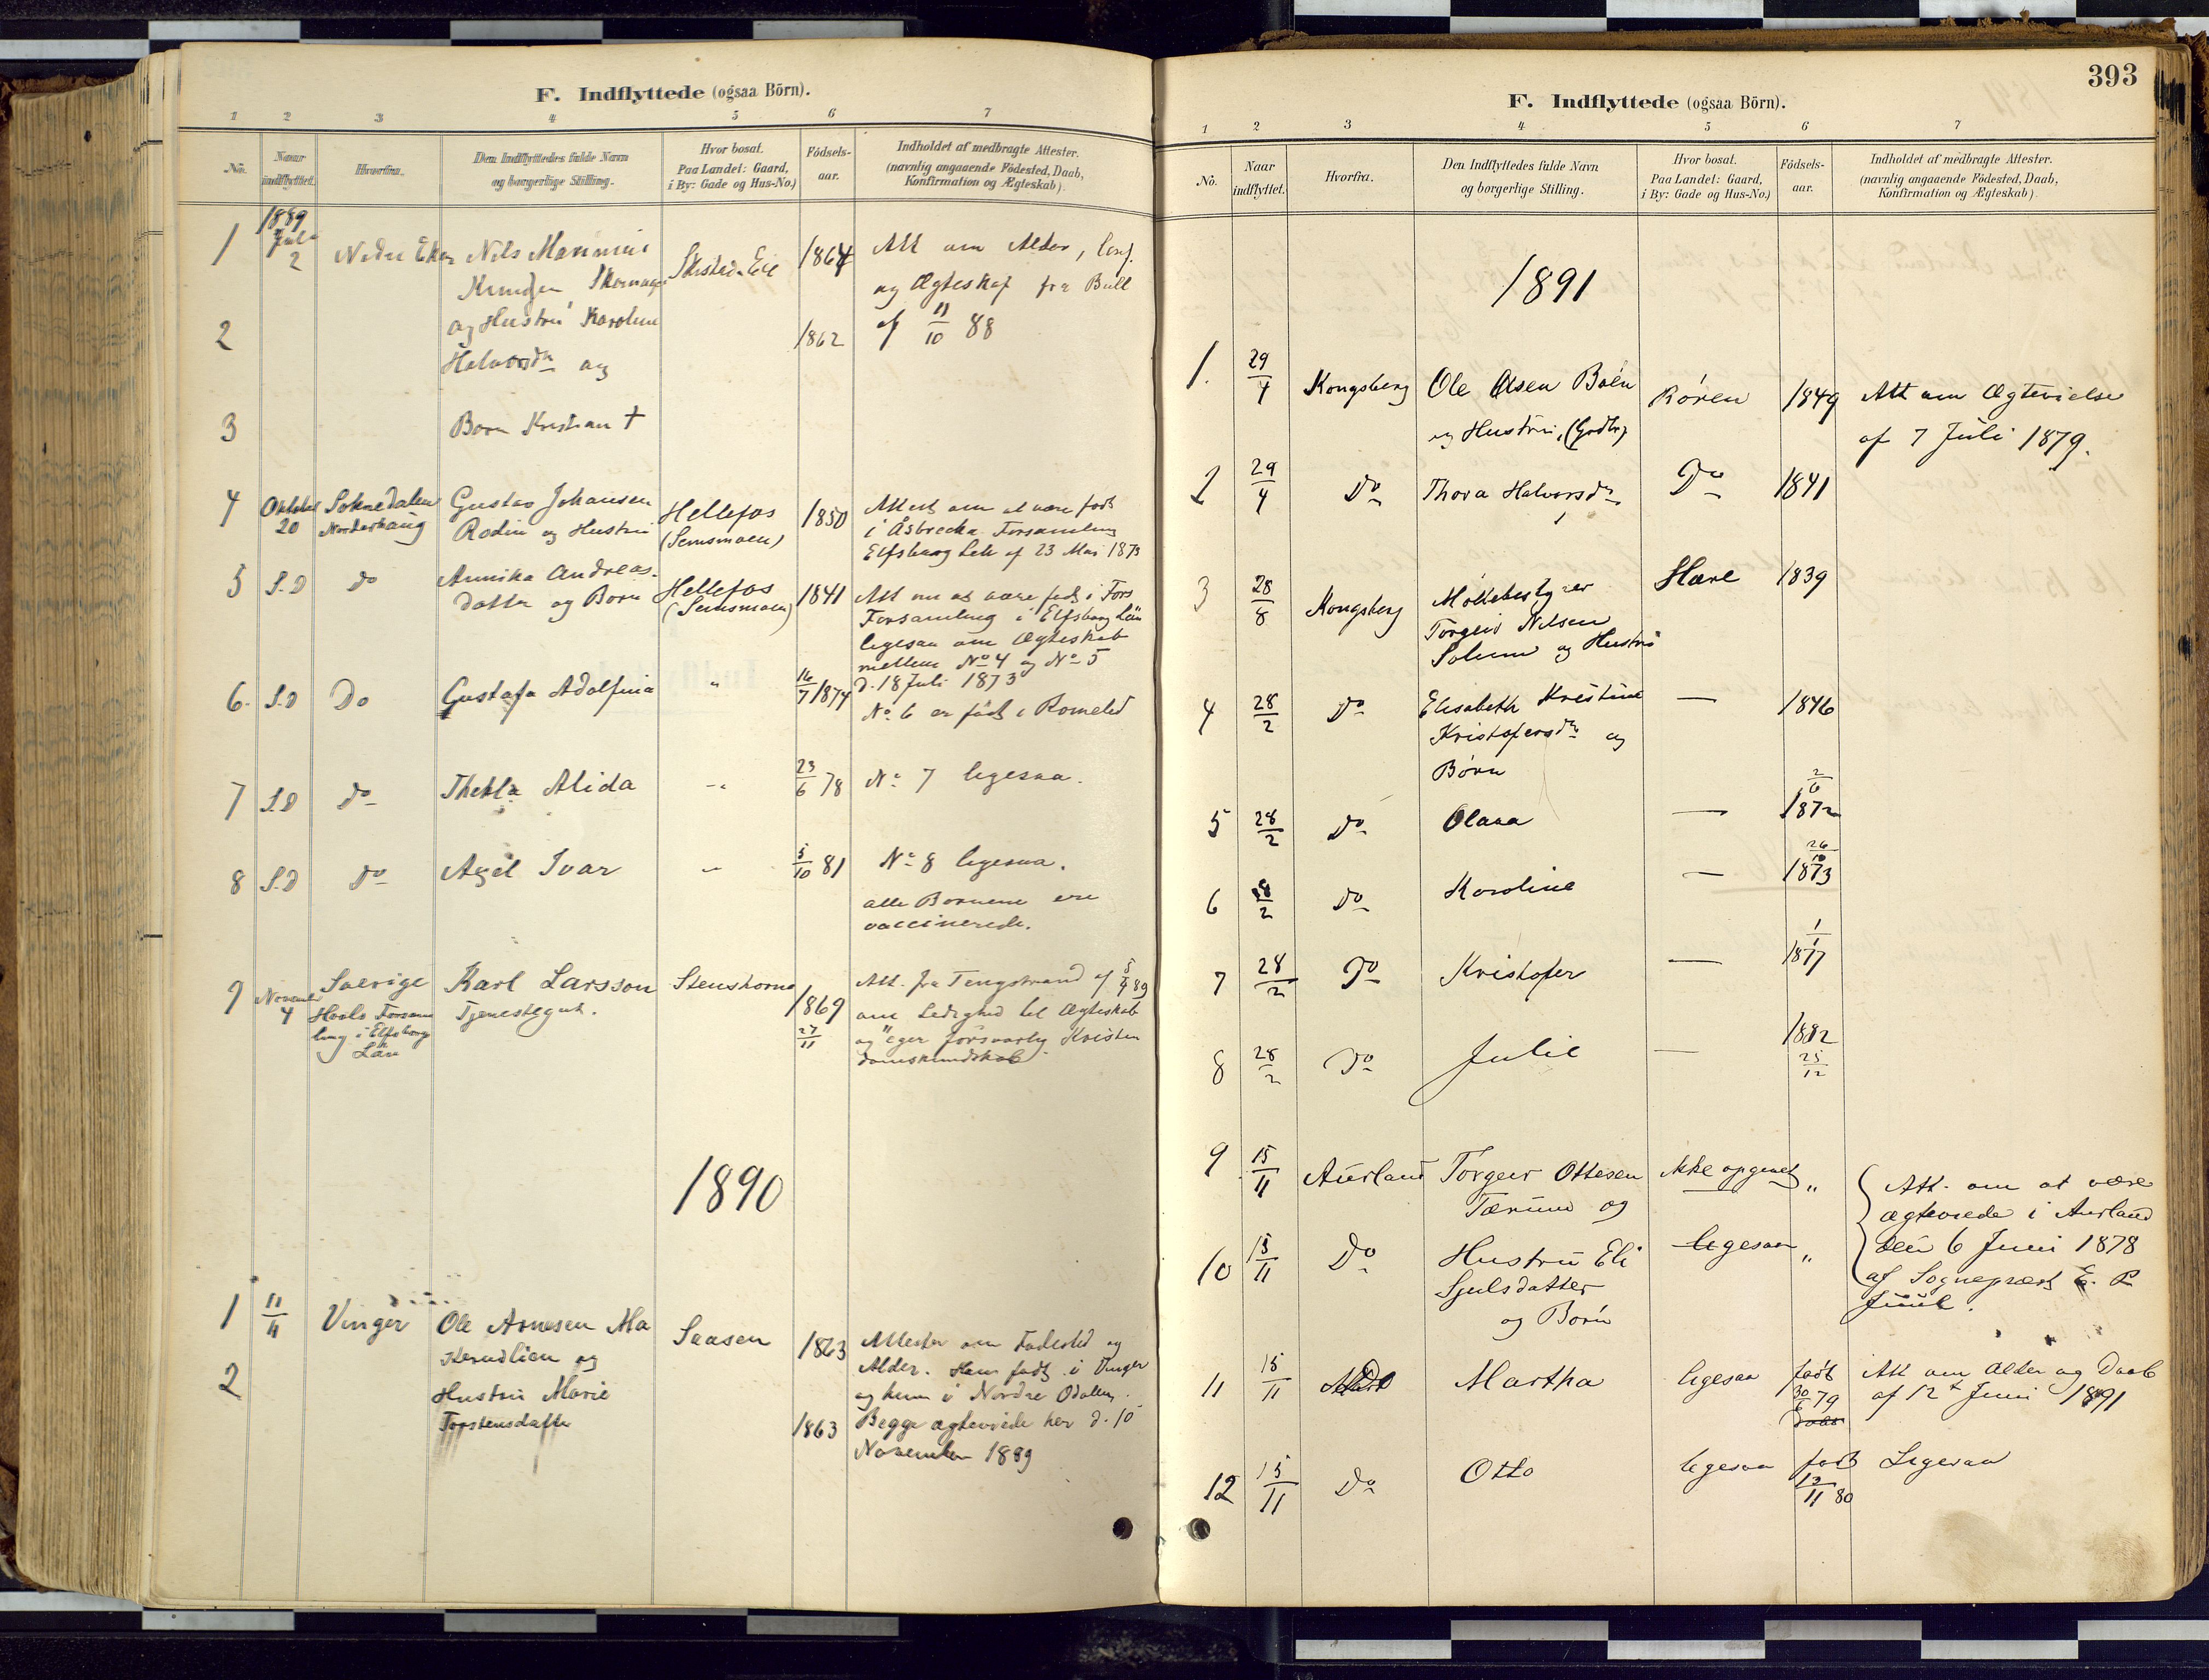 F. Indflyttede (ogsaa Börn).
1 2 3 4 5 6 7
No. Naar indflyttet. Hvorfra. Den Indflyttedes fulde Navn og borgerlige Stilling. Hvor bosat. Paa Landet: Gaard, i By: Gade og Hus-No.) Födsels-aar. Indholdet af medbragte Attester. (navnlig angaaende Födested, Daab, Konfirmation og Ægteskab).
1889
1 Juli 2 Nedre Eker Nils Marinius 1864 Att om Alder, Conf.
Knudsen og Ægteskaf fra Bull
2 og Hustru Karoline 1862 af 11/10 88
Halvorsdr og
3 Born Kristian †
4 Oktober 20 Soknedalen Norderhaug Gustav Johansen Hellefos 1850 Attest om at være født
Rodin og Hustru (Semsmoen) i Åsbrecka Forsamling
Elfsborg Leh af 23 Mai 1873
5 S.D do Annika Andreas- Hellefos 1841 Att om at være født i Fors
datter og Born (Semsmoen) Forsamling i Elfsborg Län
ligesaa om Ægteskab
mellem No 4 og No 5
d. 18 Juli 1873
6. S.D Do Gustafa Adolfina " 16/7 1874 No 6 er født i Romeled
7 S.D do Thekla Alida -" 23/6 78 No 7 ligesaa.
8 S.D do Axel Ivar -" 5/10 81 No 8 ligesaa.
alle Bornene ere
vaccinerede.
9 November 4 Sverige Karl Larsson 1869 Att. fra Tengstrand af 5/9 89
Forsam Tjenestegut. 27/11 om Ledighed til Ægteskab
ling i Elfsborg og "eger forsvarlig Kristen
Län domskundskab
1890
1 11/4 Vinger Ole Arnesen Ma Saasen 1863 Attester om Fødested og
kerudlien og Alder. Han født i Vinger
2 Hustru Marie og hun i Nordre Odalen.
Torstensdatter 1863 Begge ægteviede her d. 10
November 1889
393
F. Indflyttede (ogsaa Börn).
1 2 3 4 5 6 7
No. Naar indflyttet. Hvorfra. Den Indflyttedes fulde Navn og borgerlige Stilling. Hvor bosat. Paa Landet: Gaard, i By: Gade og Hus-No.) Födsels-aar. Indholdet af medbragte Attester. (navnlig angaaende Födested, Daab, Konfirmation og Ægteskab).
1891
1. 29/4 Kongsberg Ole Olsen Boén Røren 1849 Att om Ægtevielse
og Hustru, af 7 Juli 1879.
2 29/4 Do Thora Halvorsdr Do 1841
3 28/8 Kongsberg Møllebestyrer Hære 1839
Torgeir Nilsen
Solum og Hustru
4 28/2 Do Elisabeth Kristine — 1846
Kristofersdr og
Børn
5 28/2 Do Olava — 2/6 1872
6 28/2 Do Karoline — 26/10 1873
7 28/2 Do Kristofer — 1/1 1877
8 28/2 Do Julie — 1882 25/12
9 15/11 Aurland Torgeir Ottesen Ikke opgivet " Att. om at være
Tærum og ægteviede i Aurland
10 15/11 Do Hustru Eli ligesaa " den 6 Juni 1878
Sjulsdatter af Sogneprest E. P.
og Børn Juul.
11 15/11 Do Martha ligesaa født 30/6 79 Att om Alder og Daab
af 12te Juni 1891
12 15/11 Do Otto ligesaa født 12/11 80 Ligesaa